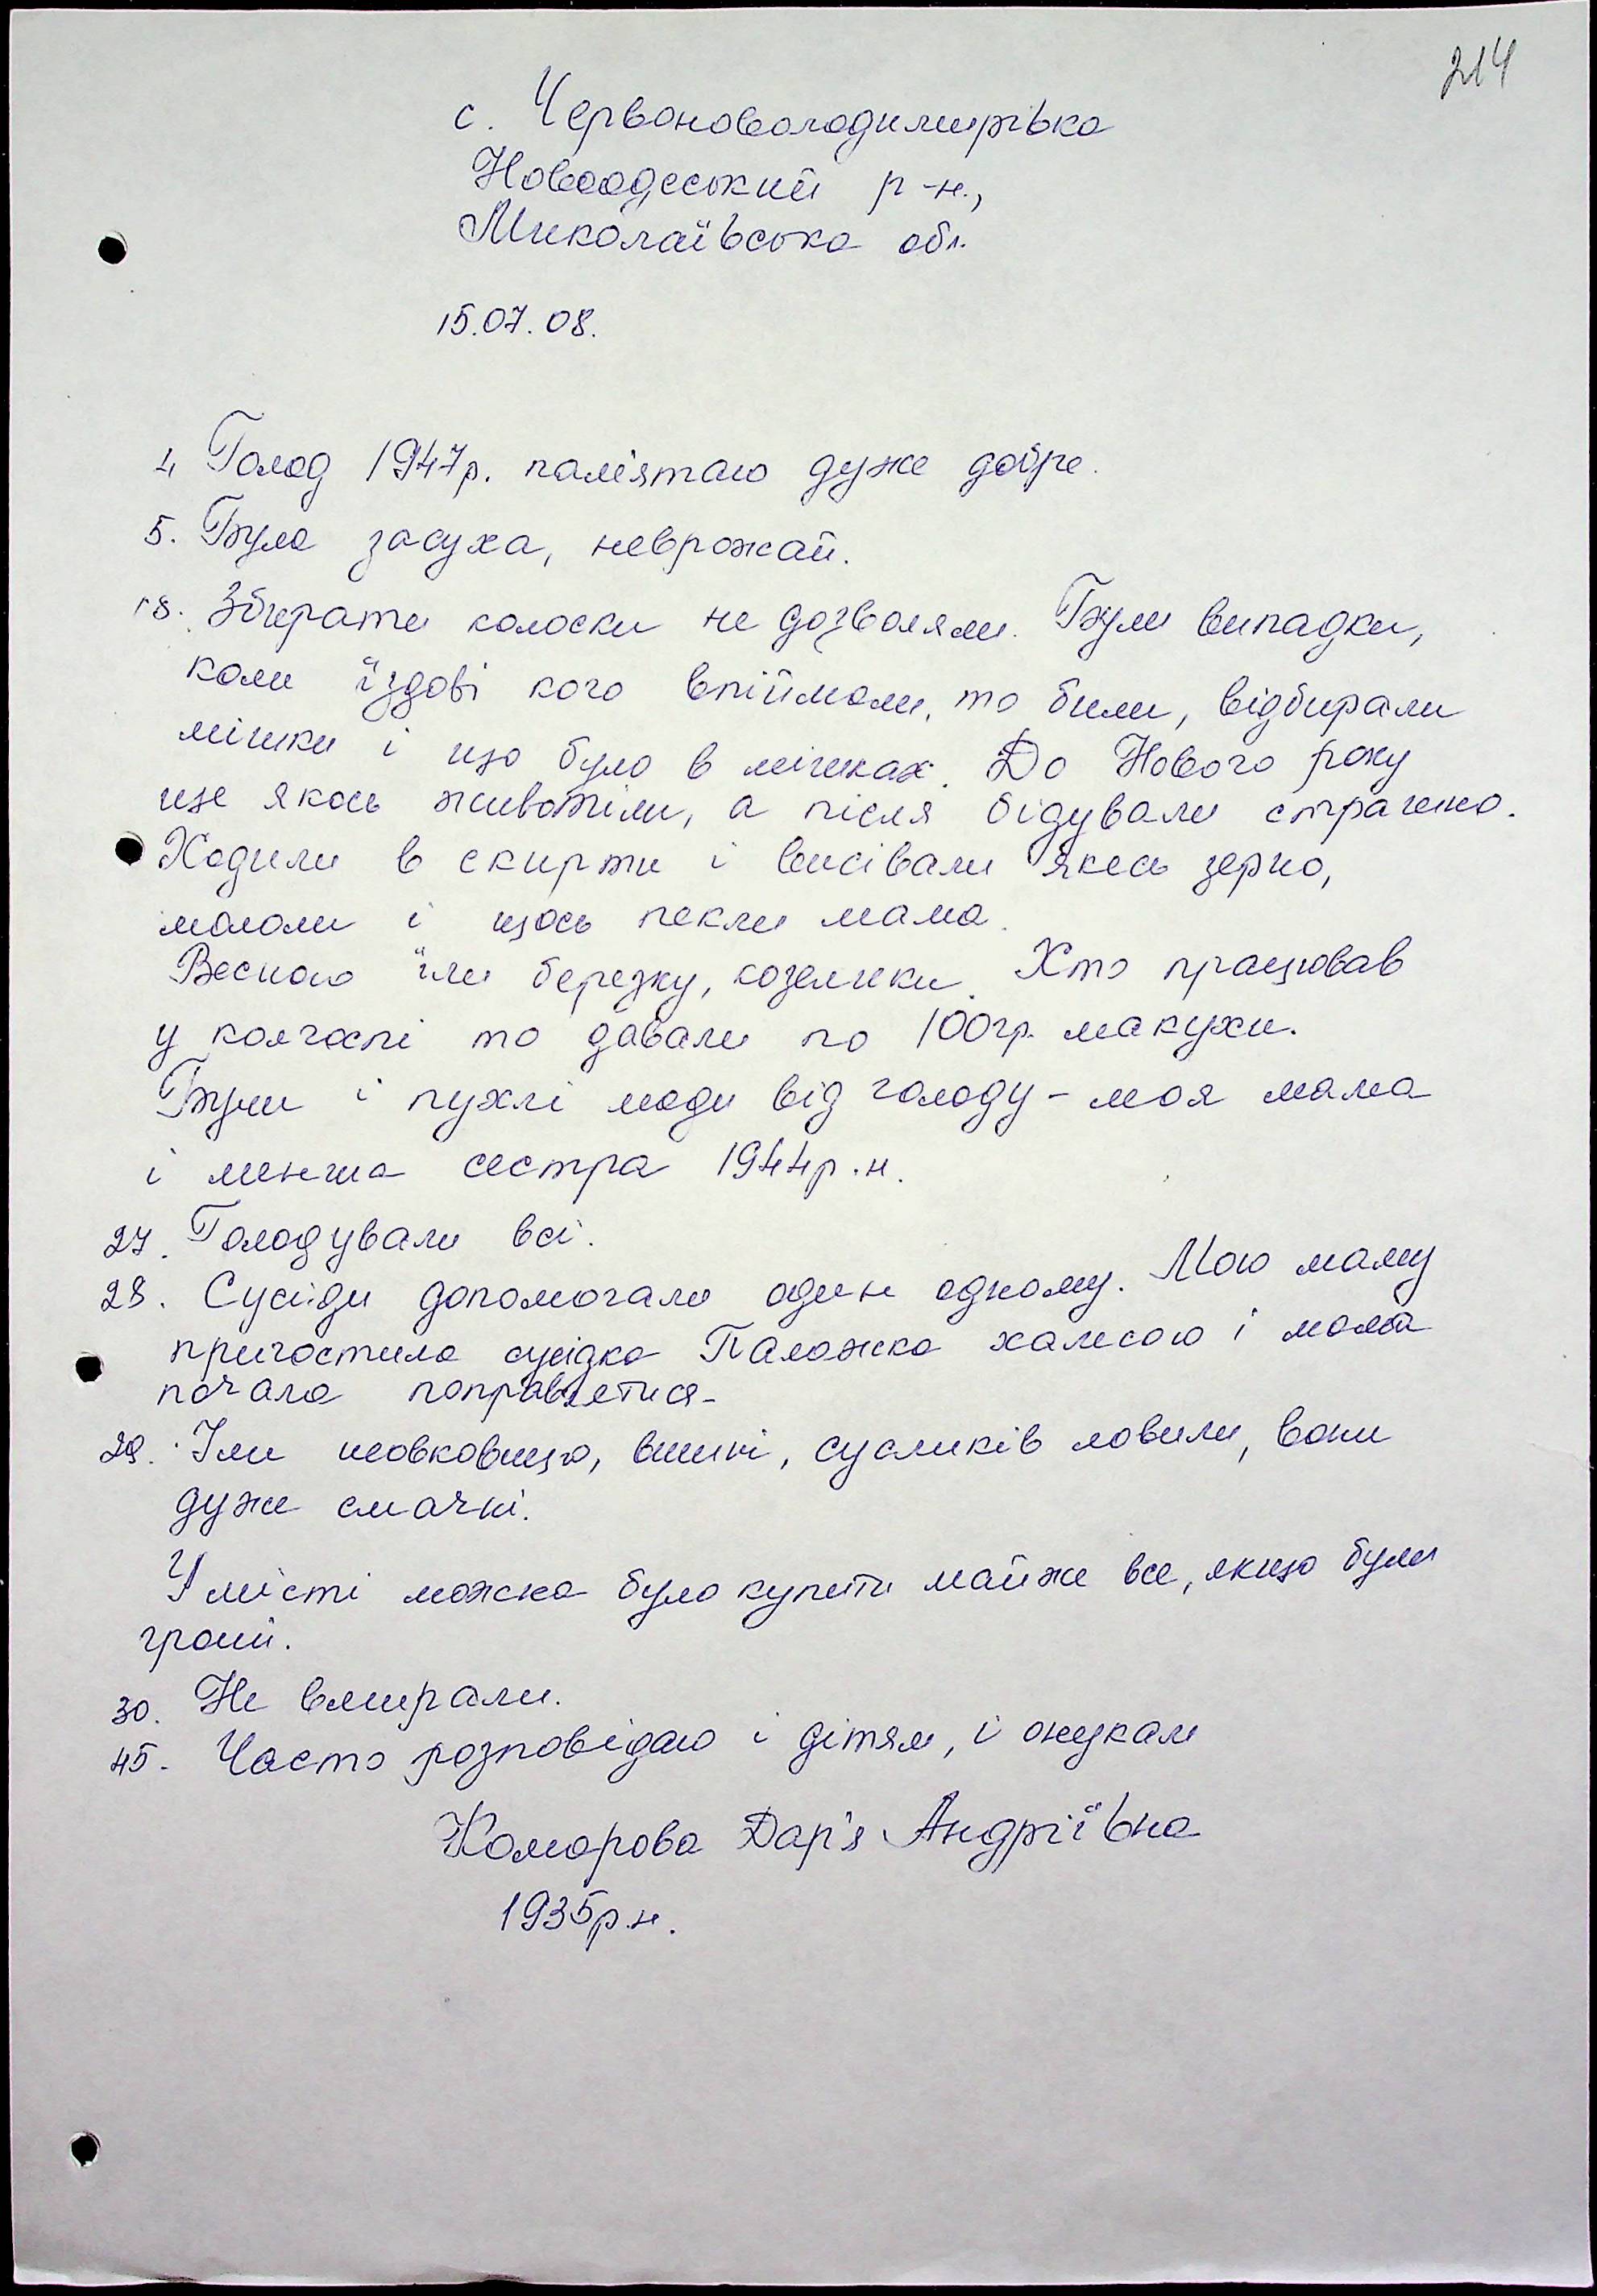 214
с. Червоноволодимирівка
Новоодеський р-н.,
Миколаївська обл.
15.07.08.
4. Голод 1947р. пам'ятаю дуже добре.
5. Була засуха, неврожай.
18. Збирати колоски не дозволяли. Були випадки,
коли їздові кого впіймали, то били, відбирали
мішки і що було в мішках. До Нового року
ще якось животіли, а після бідували страшно.
Ходили в скирти і висівали якесь зерно,
мололи і щось пекли мама.
Весною їли березку, козелики. Хто працював
у колгоспі то давали по 100гр. макухи.
Були і пухлі люди від голоду - моя мама
і менша сестра 1944р.н.
27. Голодували всі.
28. Сусіди допомогали один одному. Мою маму
пригостила сусідка Палажка халисою і мама
почала поправлятися.
29. Їли шовковицю, вишні, сусликів ловили, вони
дуже смачні.
У місті можна було купити майже все, якщо були
гроші.
30. Не вмирали.
45. Часто розповідаю і дітям, і онукам
Комарова Дар'я Андріївна
1935р.н.